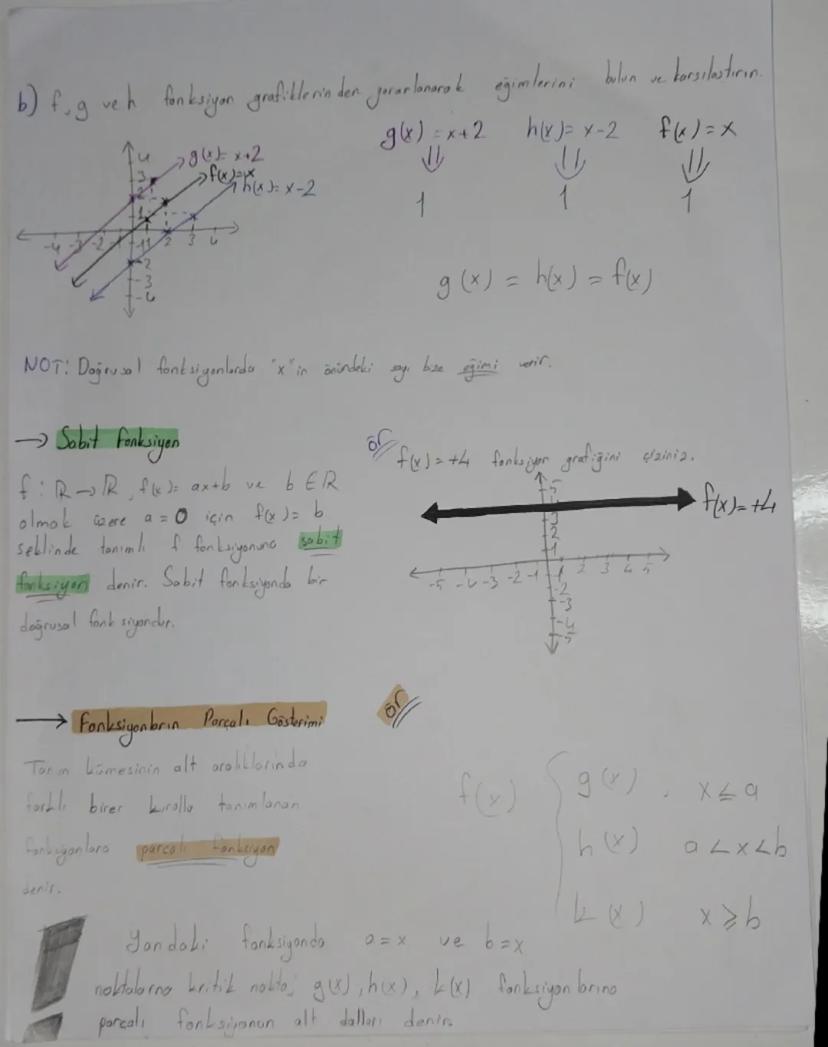 b) f, g ve h fonksiyon grafiklerinden yararlanarak eğimlerini bulun ve karşılaştırın.
g(x) = x+2 h(x) = x-2 f(x) = x
⇓ ⇓ ⇓
1 1 1
g(x) = x+2
f(x) = x
h(x) = x-2
4
3
2
1
-4 -3 -2 -1 1 2 3 4
-1
-2
-3
-4
g(x) = h(x) = f(x)
NOT: Doğrusal fonksiyonlarda "x" in önündeki sayı bize eğimi verir.
→ Sabit Fonksiyon
f : R → R, f(x) = ax+b ve b ∈ R
olmak üzere a = 0 için f(x) = b
şeklinde tanımlı f fonksiyonuna sabit
fonksiyon denir. Sabit fonksiyonda bir
doğrusal fonksiyondur.
ÖR f(x) = +4 fonksiyon grafiğini çiziniz.
f(x) = +4
5
3
2
1
-5 -4 -3 -2 -1 1 2 3 4 5
-2
-3
-4
-5
→ Fonksiyonların Parçalı Gösterimi
Tanım kümesinin alt aralıklarında
farklı birer kuralla tanımlanan
fonksiyonlara parçalı fonksiyon
denir.
ÖR
f(x) { g(x) , x ≤ a
h(x) a < x < b
k(x) x ≥ b
! Yandaki fonksiyonda a = x ve b = x
noktalarına kritik nokta, g(x), h(x), k(x) fonksiyonlarına
parçalı fonksiyonun alt dalları denir.